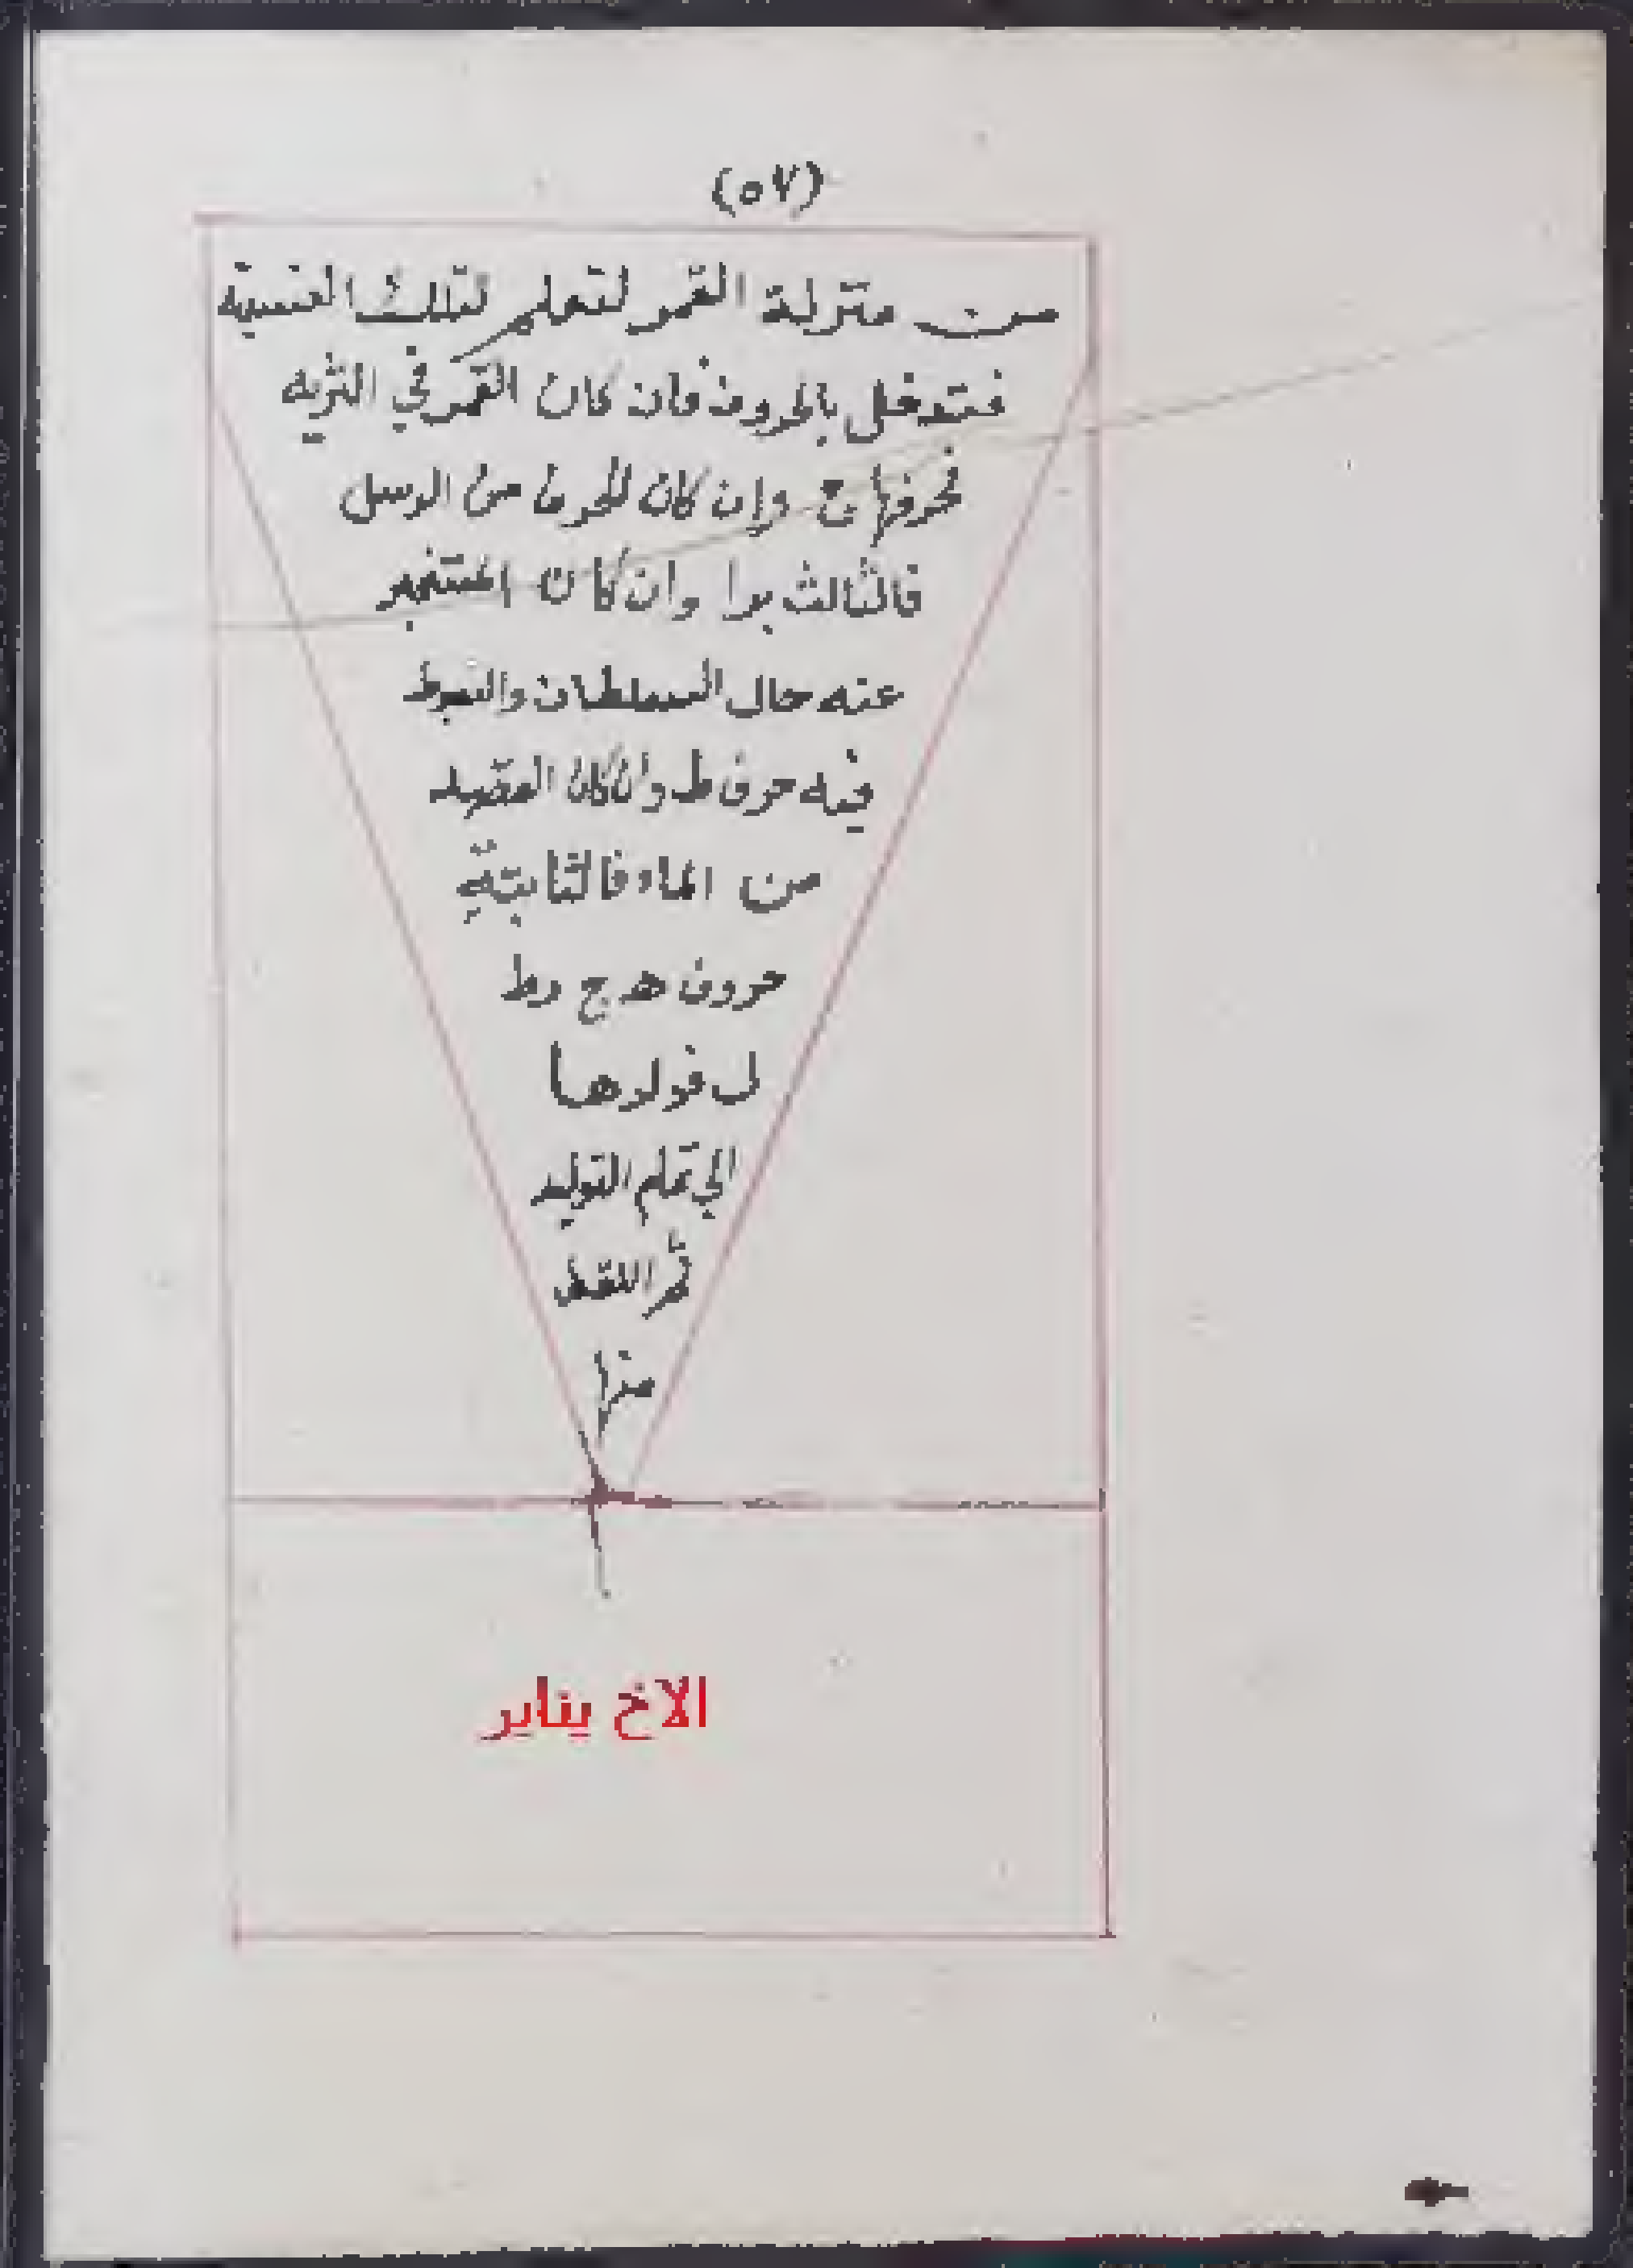 (٥٧)
من منزلة القمر لتعلم لتلك القسية
فتدخل بالحروف فان كان القمر في الثريه
فحرفها ج وان كان الحرف من الرسل
فالثالث بدا وان كان المستخبر
عنه حال السلطان والنبوط
فيه حرف ط وان كان القصد
من الماء فالثابتة
حروف هـ ج د ط
ل فولدها
الي تمام التوليد
ثم اللقط
منها
الاخ يناير